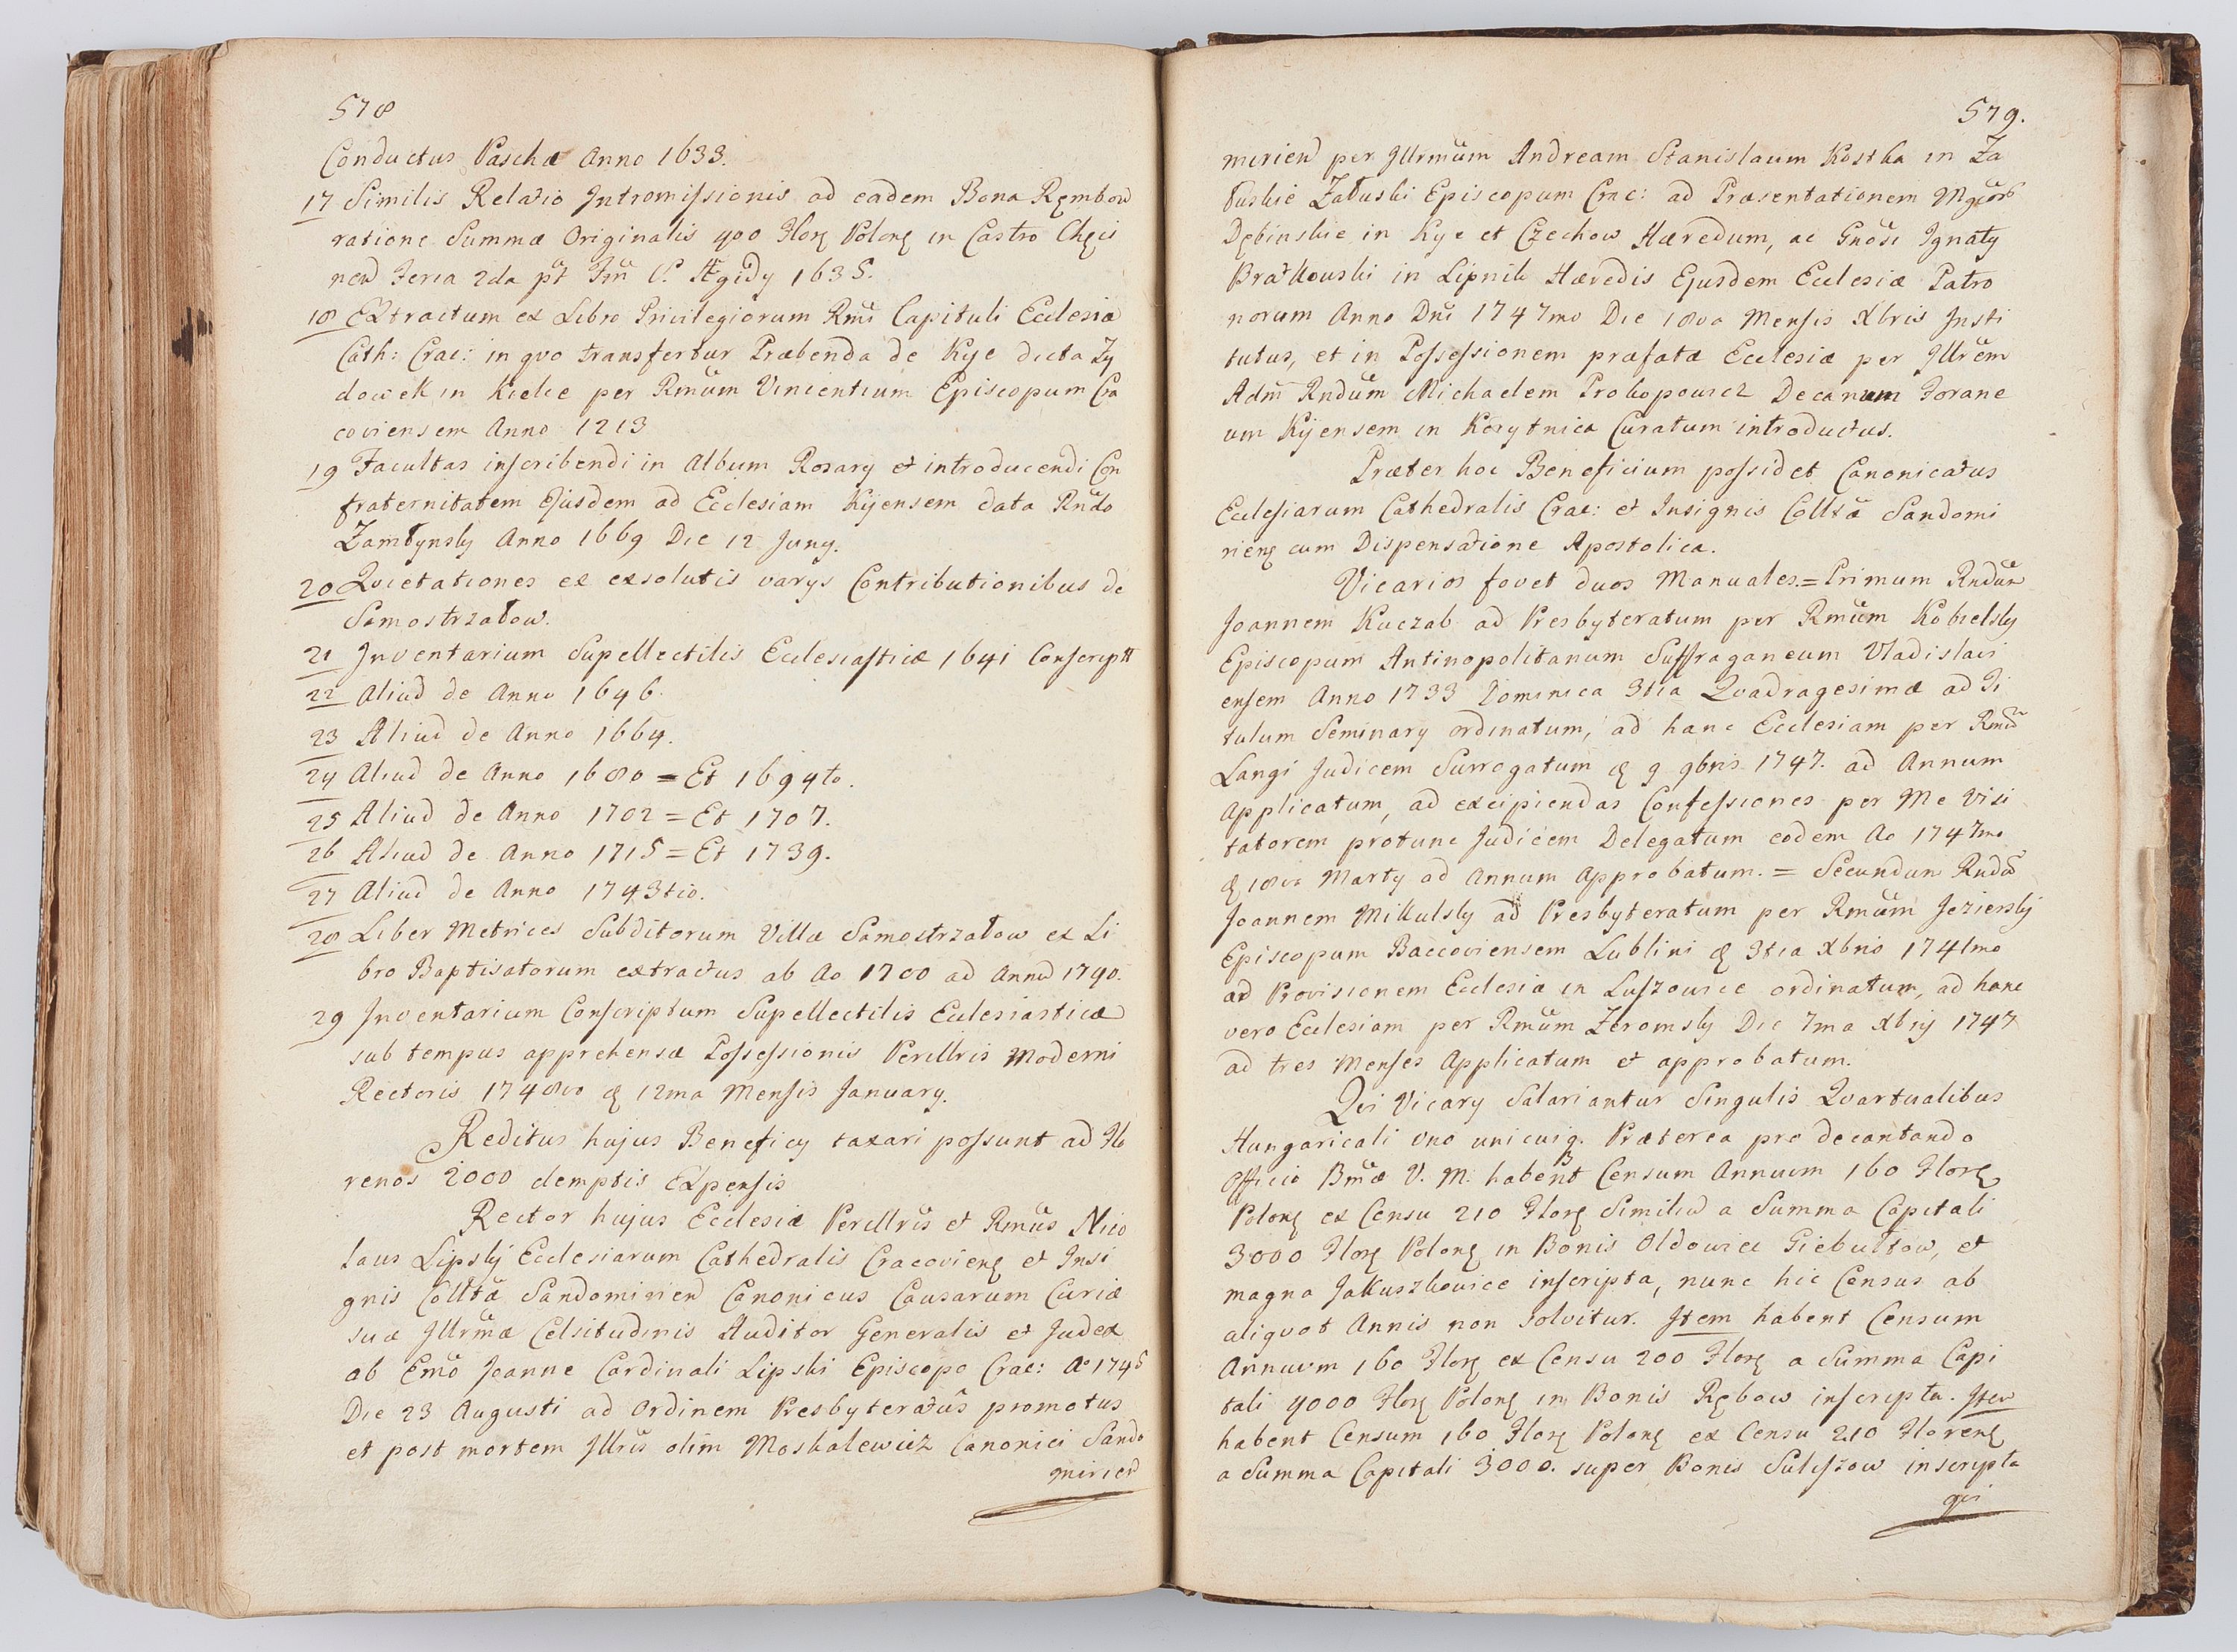 578
Conductus Paschæ Anno 1633.
17 Similis Relatio Intromissionis ad eadem Bona Rembow
ratione Summæ Originalis 400 Flor Polon in Castro Chęci
nen Feria 2da pt Fm S. Ægidy 1635.
18 Extractum ex Libro Privilegiorum Rmi Capituli Ecclesiæ
Cath: Crac: in qvo transfertur Præbenda de Kye dicta Zy
dowek in Kielce per Rmum Vincentium Episcopum Cra
coviensem Anno 1213
19 Facultas inscribendi in Album Rosary et introducendi Con
fraternitatem Ejusdem ad Ecclesiam Kijensem data Rndo
Zamłynsky Anno 1669 Die 12 Juny.
20 Qvietationes ex exsolutis varys Contributionibus de
Samostrzałow.
21 Inventarium Supellectilis Ecclesiasticæ 1641 Conscript
22 Aliud de Anno 1646.
23 Aliud de Anno 1664.
24 Aliud de Anno 1680 = Et 1694to.
25 Aliud de Anno 1702 = Et 1707.
26 Aliud de Anno 1715 = Et 1739.
27 Aliud de Anno 1743tio.
28 Liber Metrices Subditorum Villæ Samostrzałow ex Li
bro Baptisatorum extractus ab Ao 1700 ad Annu 1740.
29 Inventarium Conscriptum Supellectilis Ecclesiasticæ
sub tempus apprehensæ Possessionis Perillris Moderni
Rectoris 1748vo & 12ma Mensis January.
Reditus hujus Beneficy taxari possunt ad Flo
renos 2000 demptis Expensis
Rector hujus Ecclesiæ Perillris et Rmus Nico
laus Lipsky Ecclesiarum Cathedralis Cracovien et Insi
gnis Colltæ Sandomirien Canonicus Causarum Curiæ
suæ Illrmæ Celsitudinis Auditor Generalis et Judex
ab Emo Joanne Cardinali Lipski Episcopo Crac: Ao 1745
Die 23 Augusti ad Ordinem Presbyteratus promotus
et post mortem Illris olim Moskalewicz Canonici Sando
mirien
579.
mirien per Illrmum Andream Stanislaum Kostka in Za
łuskie Załuski Episcopum Crac: ad Præsentationem
Dębinskie in Kye et Czechow Hæredum, ac Gnosi Ignaty
Bratkowski in Lipnik Hæredis Ejusdem Ecclesiæ Patro
norum Anno Dni 1747mo Die 18va Mensis Xbris Insti
tutus, et in Possessionem præfatæ Ecclesiæ per Illrem
Adm Rndum Michaelem Prokopowicz Decanum Forane
um Kijensem in Korytnica Curatum introductus.
Præter hoc Beneficium possidet Canonicatus
Ecclesiarum Cathedralis Crac: et Insignis Colltæ Sandomi
rien cum Dispensatione Apostolica.
Vicarios fovet duos Manuales = Primum Rndum
Joannem Kuczab ad Presbyteratum per Rmum Kobielsky
Episcopum Antinopolitanum Suffraganeum Vladislavi
ensem Anno 1733 Dominica 3tia Qvadragesimæ ad Ti
tulum Seminary ordinatum, ad hanc Ecclesiam per Rmu
Langi Judicem Surrogatum & 9 9bris 1747. ad Annum
Applicatum, ad excipiendas Confessiones per Me Visi
tatorem protunc Judicem Delegatum eodem Ao 1747mo
& 18va Marty ad Annum Approbatum. = Secundum Rndu
Joannem Mikulsky ad Presbyteratum per Rmum Jeziersky
Episcopum Baccoviensem Lublini & 3tia Xbris 1741mo
ad Provisionem Ecclesiæ in Luszowice ordinatum, ad hanc
vero Ecclesiam per Rmum Zeromsky Die 7ma Xbris 1747
ad tres Menses Applicatum et approbatum.
Qvi Vicary Salariantur Singulis Qvartualibus
Hungaricali uno unicuiq. Præterea pro decantando
Officio Bmæ V. M. habent Censum Annuum 160 Flor
Polon ex Censu 210 Flor Similiu a Summa Capitali
3000 Flor Polon in Bonis Oldowice Giebułtow, et
magna Jakuszkowice inscripta, nunc hic Census ab
aliqvot Annis non Solvitur. Item habent Censum
Annuum 160 Flor ex Censu 200 Flor a Summa Capi
tali 4000 Flor Polon in Bonis Rębow inscripta. Item
habent Censum 160 Flor Polon ex Censu 210 Floren
a Summa Capitali 3000. super Bonis Sulyszow inscripta
qvi